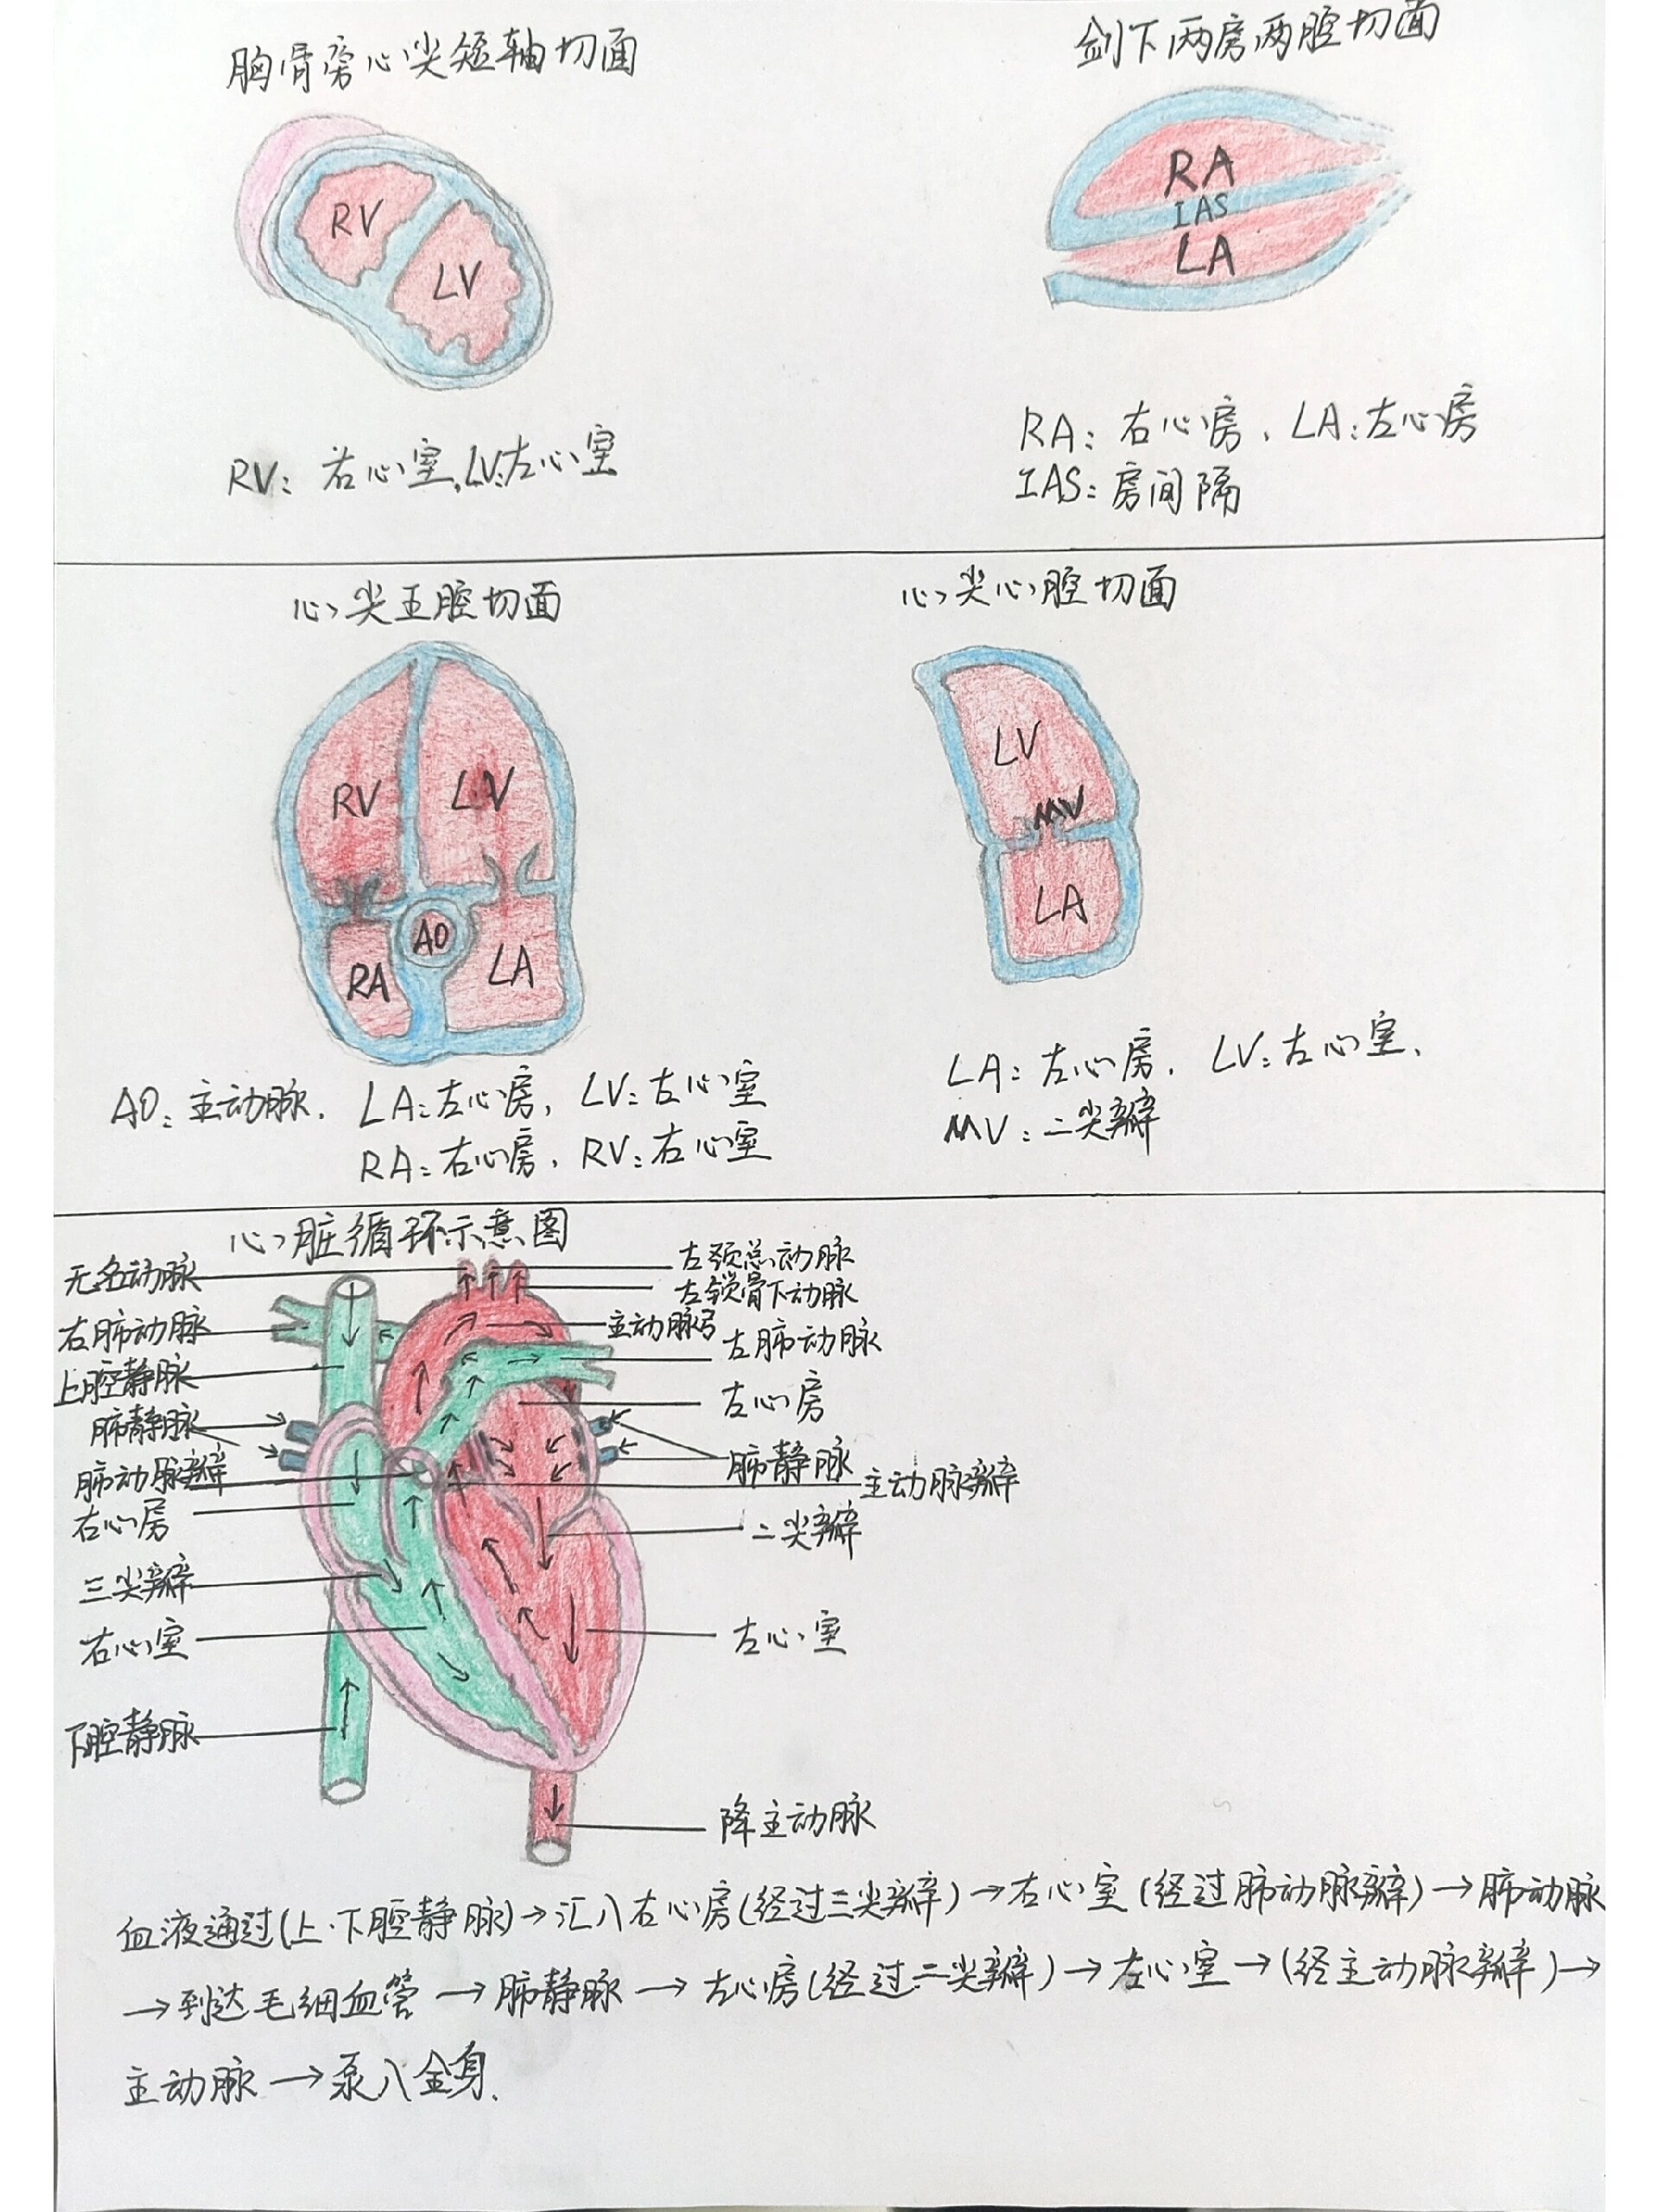 胸骨旁心尖短轴切面
RV
LV
RV：右心室，LV：左心室
剑下两房两腔切面
RA
IAS
LA
RA：右心房，LA：左心房
IAS：房间隔
心尖五腔切面
RV
LV
AO
RA
LA
AO：主动脉，LA：左心房，LV：左心室
RA：右心房，RV：右心室
心尖心腔切面
LV
MV
LA
LA：左心房，LV：左心室，
MV：二尖瓣
心脏循环示意图
无名动脉
右肺动脉
上腔静脉
肺静脉
肺动脉瓣
右心房
三尖瓣
右心室
下腔静脉
左颈总动脉
左锁骨下动脉
主动脉弓
左肺动脉
左心房
肺静脉
主动脉瓣
二尖瓣
左心室
降主动脉
血液通过(上.下腔静脉)→汇入右心房(经过三尖瓣)→右心室(经过肺动脉瓣)→肺动脉
→到达毛细血管→肺静脉→左心房(经过二尖瓣)→左心室→(经主动脉瓣)→
主动脉→泵入全身.